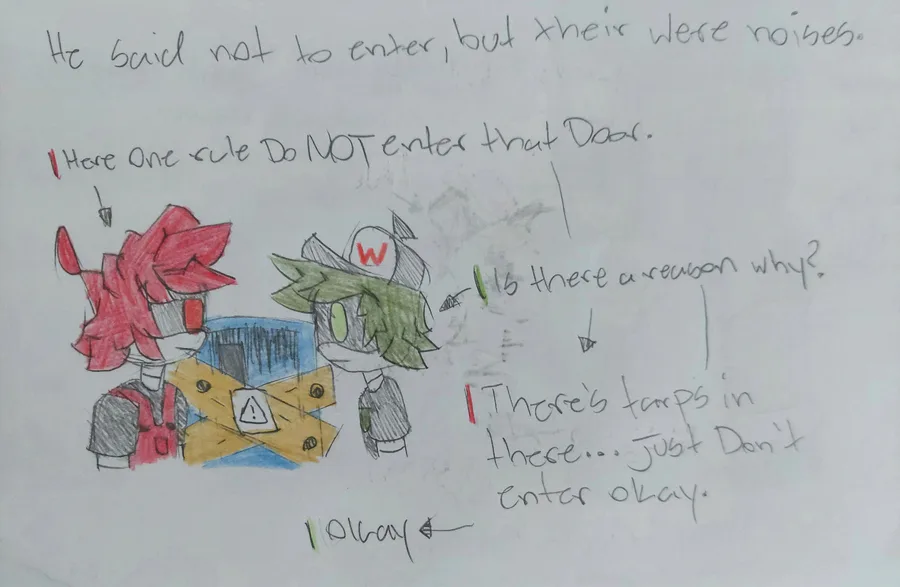 He said not to enter, but their were noises.
Here One rule Do NOT enter that Door.
W
Is there a reason why?
There's tarps in
there... just Don't
enter okay.
Okay